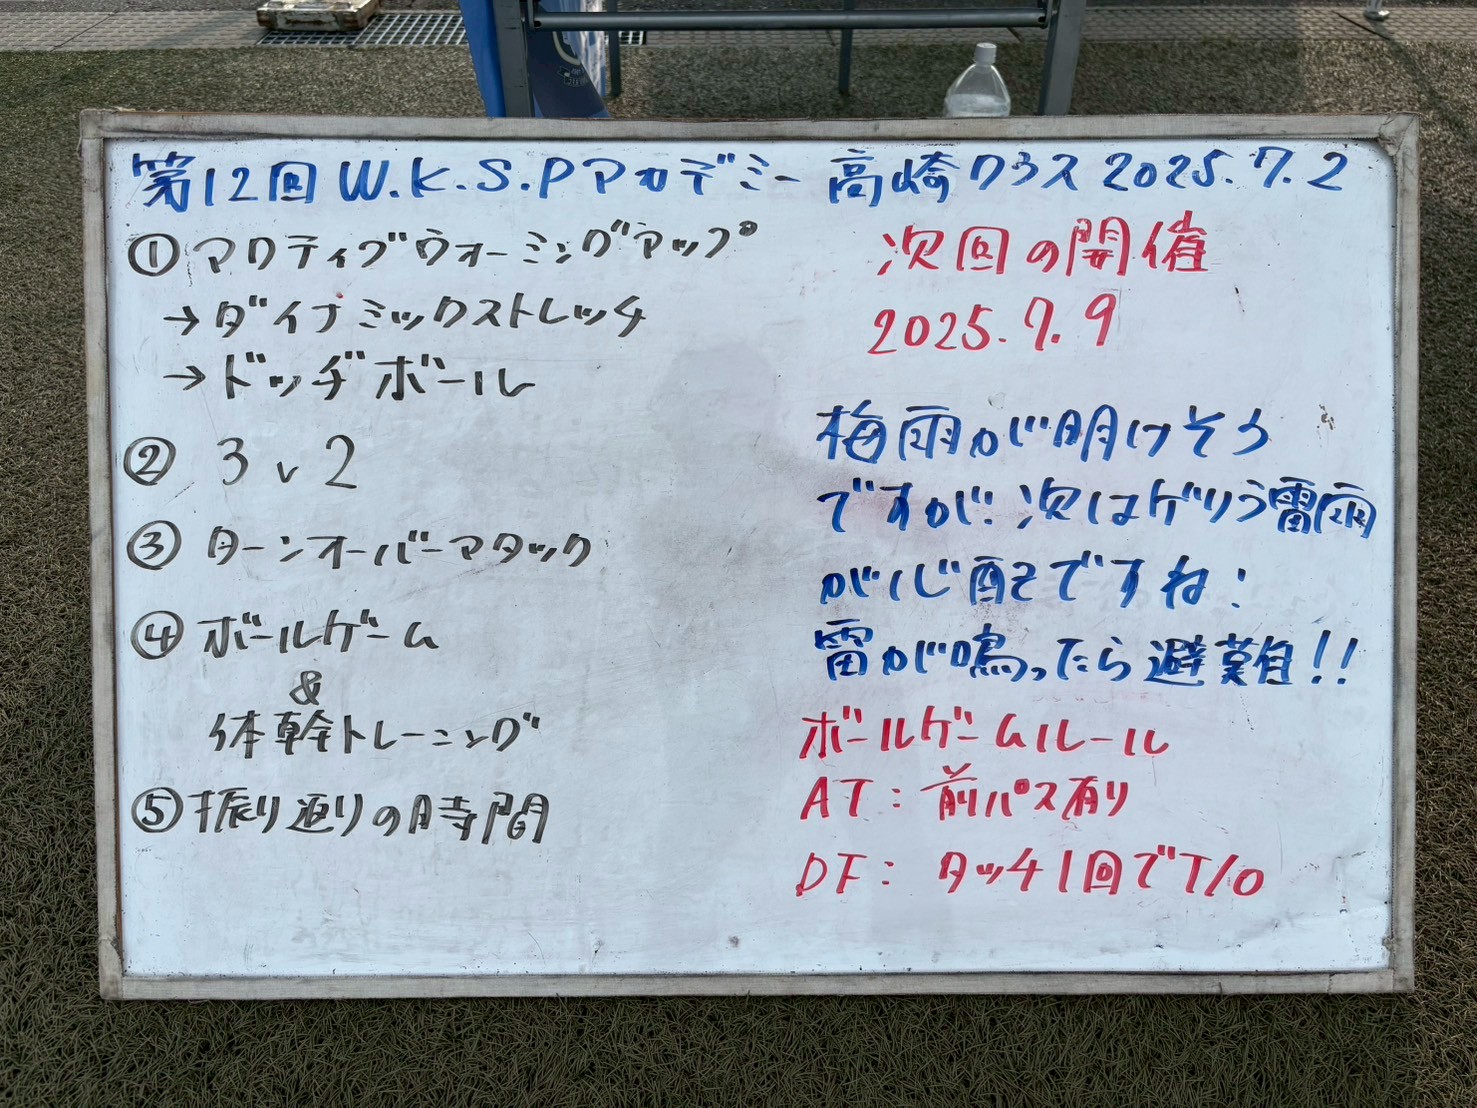 第12回 W.K.S.Pアカデミー 高崎クラス 2025.7.2
① アクティブウォーミングアップ
→ ダイナミックストレッチ
→ ドッヂボール
② 3 v 2
③ ターンオーバーアタック
④ ボールゲーム
&
体幹トレーニング
⑤ 振り返りの時間
次回の開催
2025.7.9
梅雨が明けそう
ですが、次はゲリラ雷雨
が心配ですね!
雷が鳴ったら避難!!
ボールゲームルール
AT: 前パス有り
DF: タッチ1回でT/O